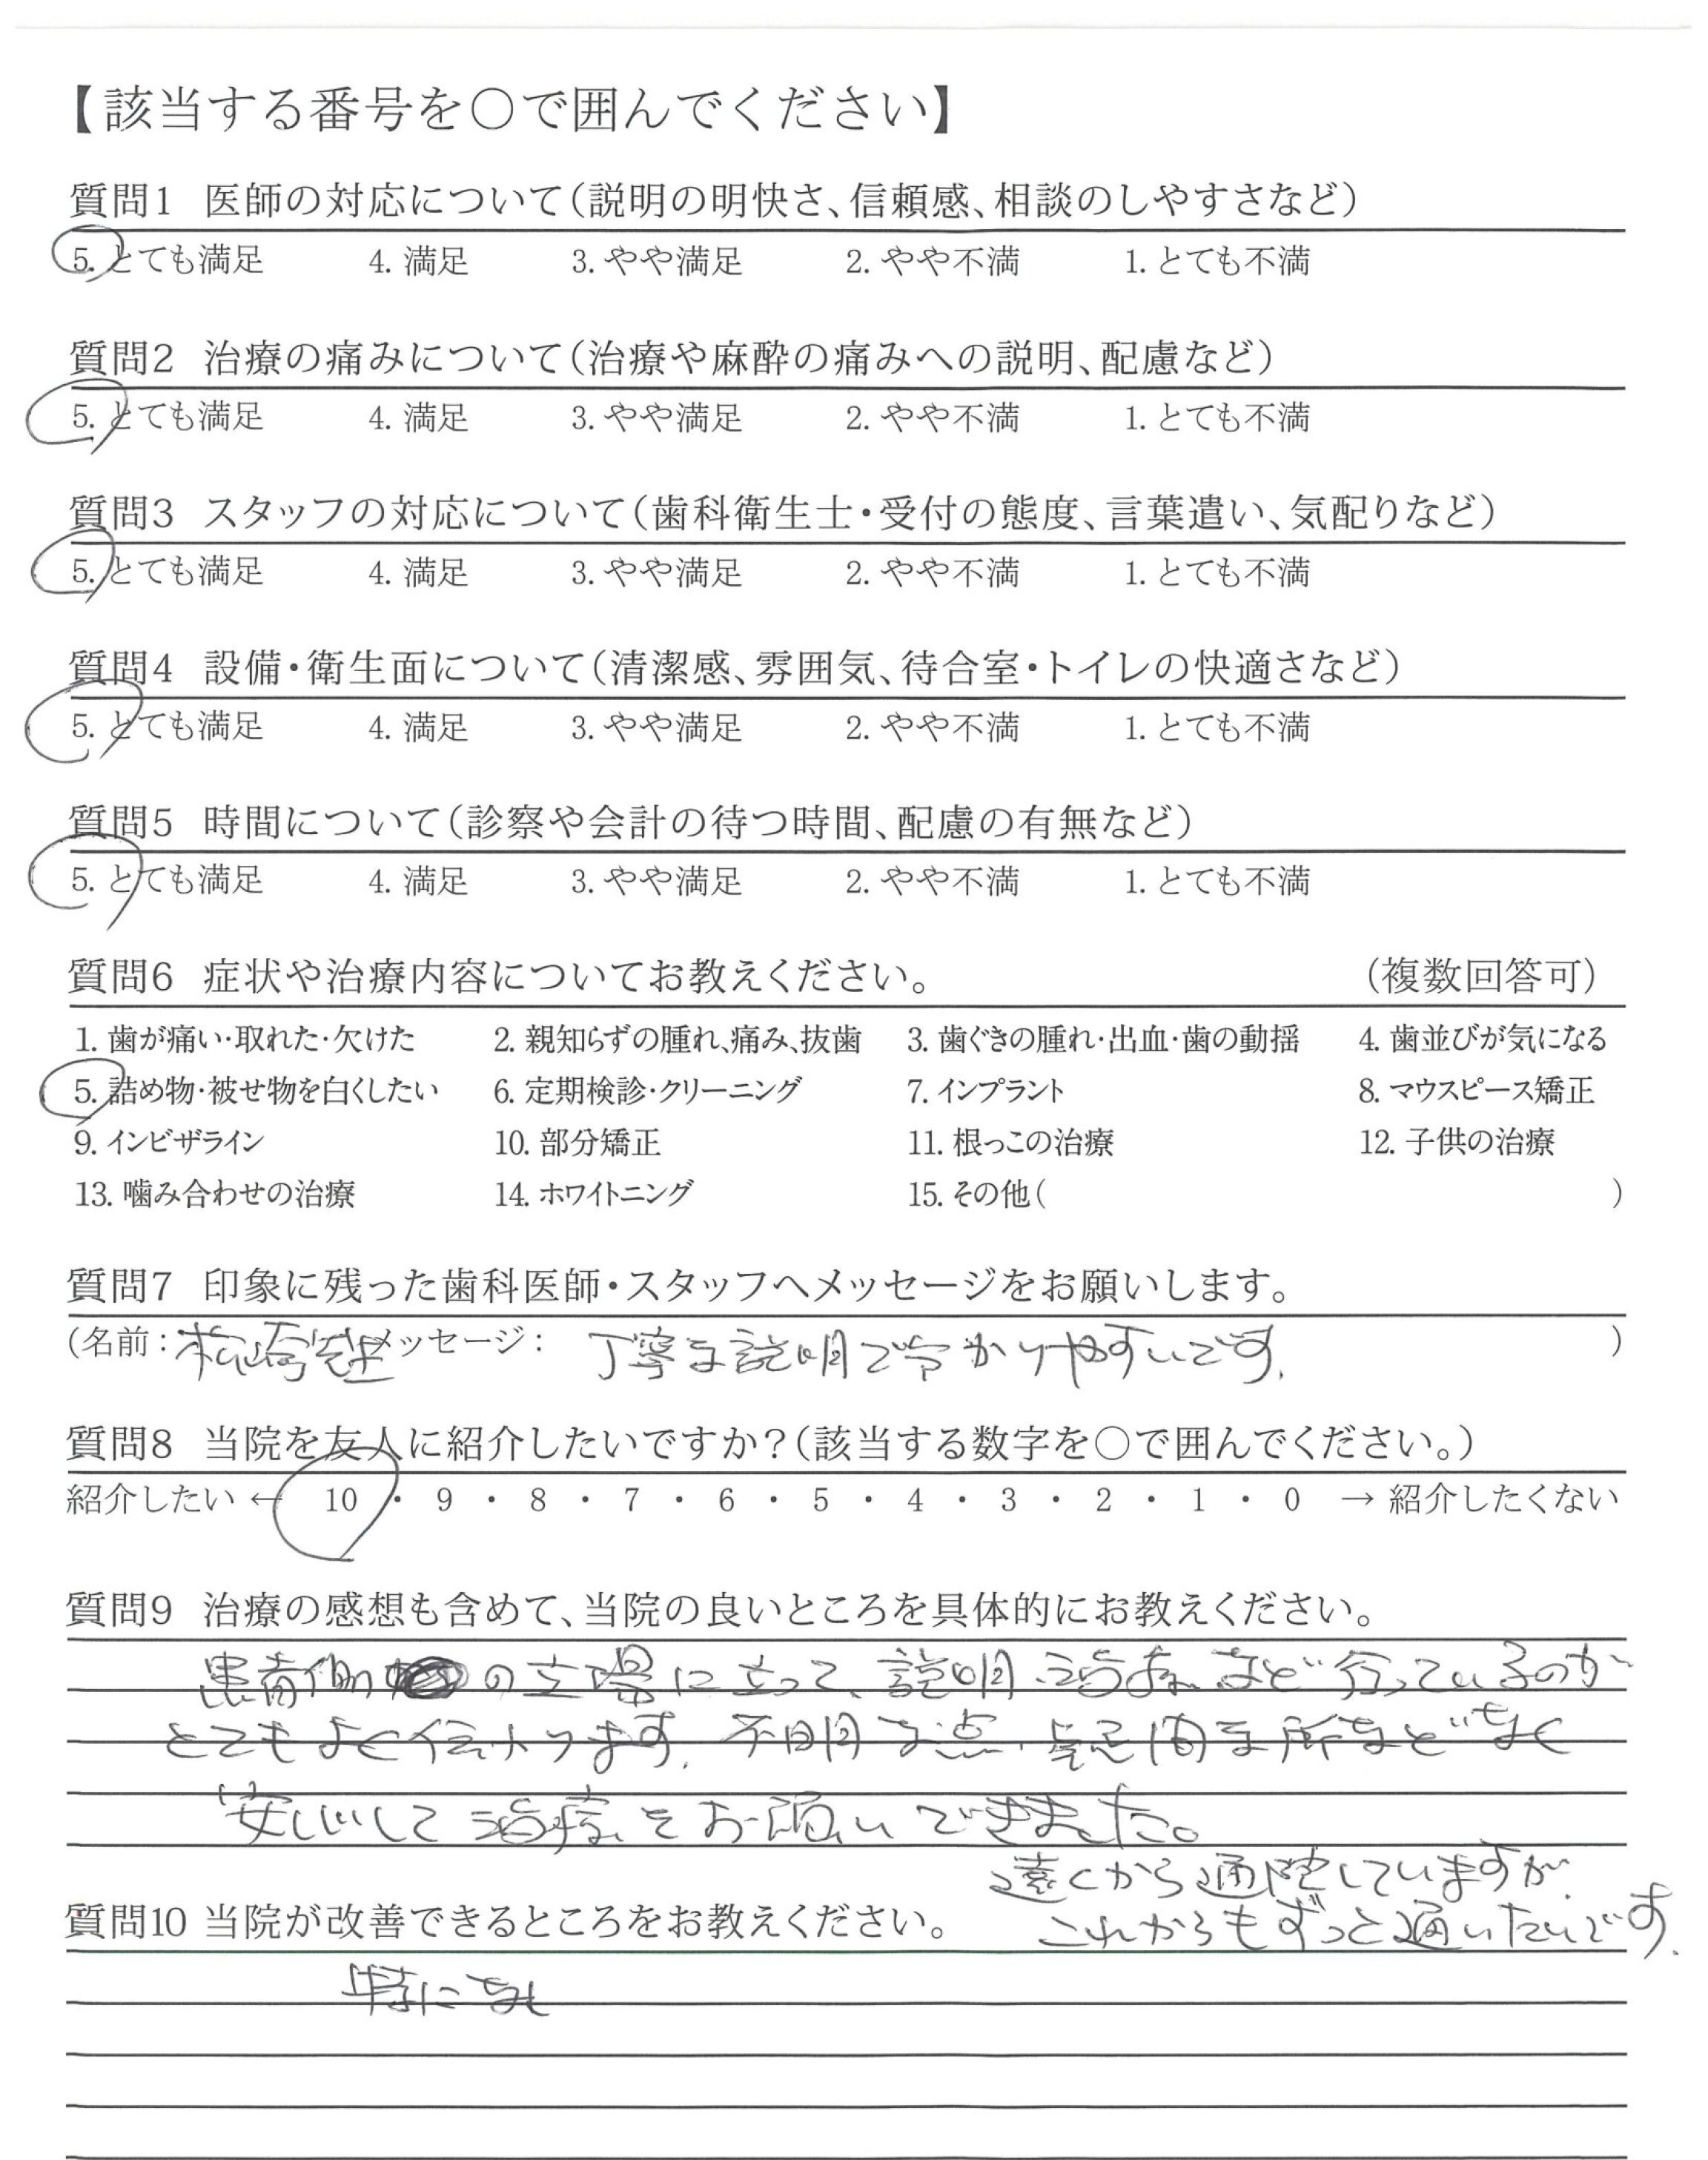 【該当する番号を○で囲んでください】
質問1 医師の対応について(説明の明快さ、信頼感、相談のしやすさなど)
5. とても満足 4. 満足 3. やや満足 2. やや不満 1. とても不満
質問2 治療の痛みについて(治療や麻酔の痛みへの説明、配慮など)
5. とても満足 4. 満足 3. やや満足 2. やや不満 1. とても不満
質問3 スタッフの対応について(歯科衛生士・受付の態度、言葉遣い、気配りなど)
5. とても満足 4. 満足 3. やや満足 2. やや不満 1. とても不満
質問4 設備・衛生面について(清潔感、雰囲気、待合室・トイレの快適さなど)
5. とても満足 4. 満足 3. やや満足 2. やや不満 1. とても不満
質問5 時間について(診察や会計の待つ時間、配慮の有無など)
5. とても満足 4. 満足 3. やや満足 2. やや不満 1. とても不満
質問6 症状や治療内容についてお教えください。 (複数回答可)
1. 歯が痛い・取れた・欠けた 2. 親知らずの腫れ、痛み、抜歯 3. 歯ぐきの腫れ・出血・歯の動揺 4. 歯並びが気になる
5. 詰め物・被せ物を白くしたい 6. 定期検診・クリーニング 7. インプラント 8. マウスピース矯正
9. インビザライン 10. 部分矯正 11. 根っこの治療 12. 子供の治療
13. 噛み合わせの治療 14. ホワイトニング 15. その他( )
質問7 印象に残った歯科医師・スタッフへメッセージをお願いします。
(名前: 松崎先生 メッセージ: 丁寧な説明で分かりやすいです. )
質問8 当院を友人に紹介したいですか?(該当する数字を○で囲んでください。)
紹介したい ← 10 ・ 9 ・ 8 ・ 7 ・ 6 ・ 5 ・ 4 ・ 3 ・ 2 ・ 1 ・ 0 → 紹介したくない
質問9 治療の感想も含めて、当院の良いところを具体的にお教えください。
患者側の立場に立って、説明、治療など行っているのが
とてもよく伝わります. 不明な点、疑問な所などもなく
安心して治療をお願いできました。
遠くから通院していますが、
これからもずっと通いたいです.
質問10 当院が改善できるところをお教えください。
特になし